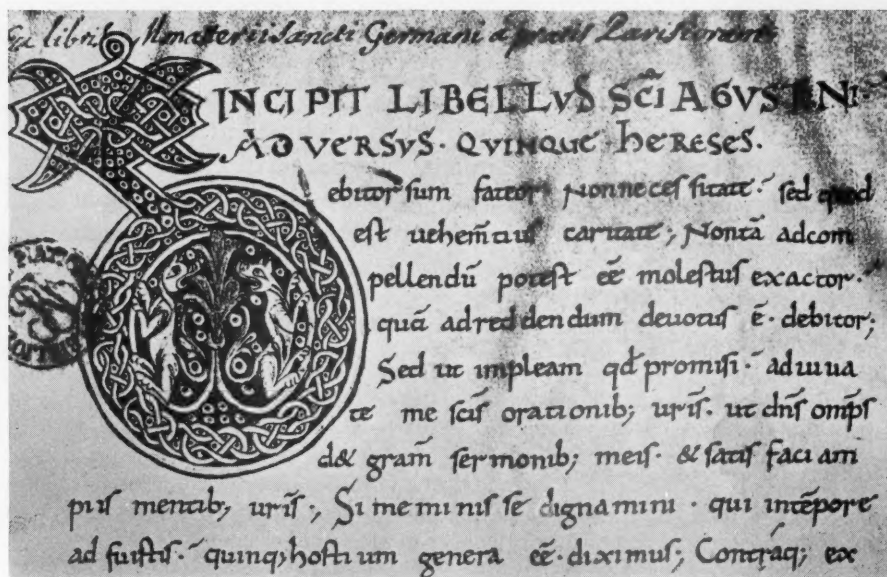 Ex libris Monasterii Sancti Germani a pratis Parisiorum
INCIPIT LIBELLVS SCI AGVSTINI
ADVERSVS · QVINQVE hERESES.
Debitor sum fateor Non necessitate. sed quod
est uehem̄tius caritate; Non tā adcom
pellendū potest eē molestus exactor.
quā ad reddendum deuotus ē· debitor;
Sed ut impleam qđ promisi. adiuua
te me sc̄is orationib; ur̄is. ut dn̄s omp̄s
d& gram̄ sermonib; meis· & satis faciam
piis mentib; ur̄is; Si meminisse dignamini · qui intēpore
adfuistis. quinq; hostium genera eē· diximus; Contraq; ex